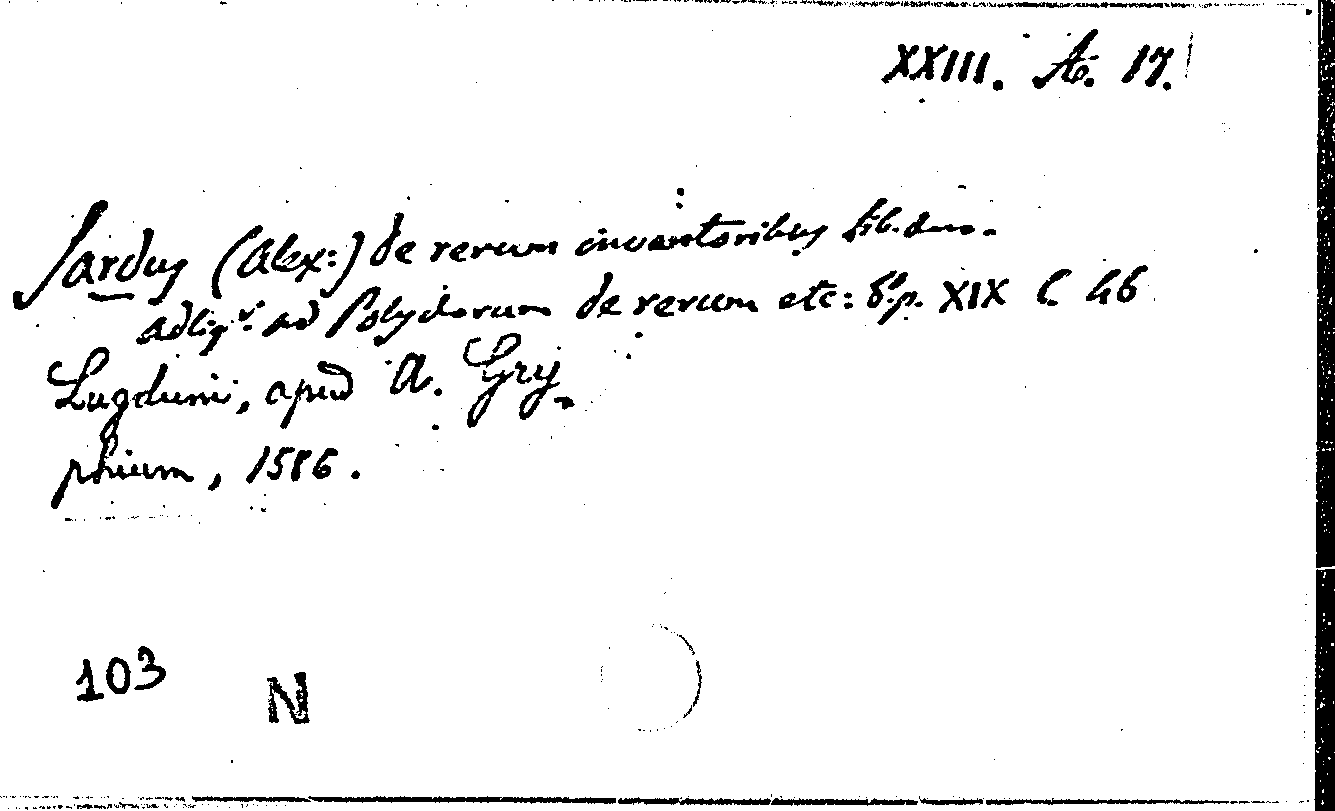 XXIII. A. 17.
Sardus (Alex:) de rerum inventoribus lib. duo.
adlig.r ad Polydorum de rerum etc: XIX C 46
Lugduni, apud A. Gry-
phium, 1586.
103
N